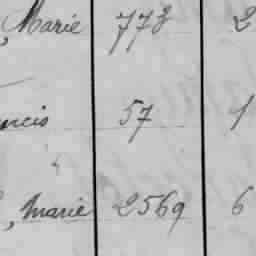 , Marie 773 2
ncis 57 1
, Marie 2569 6